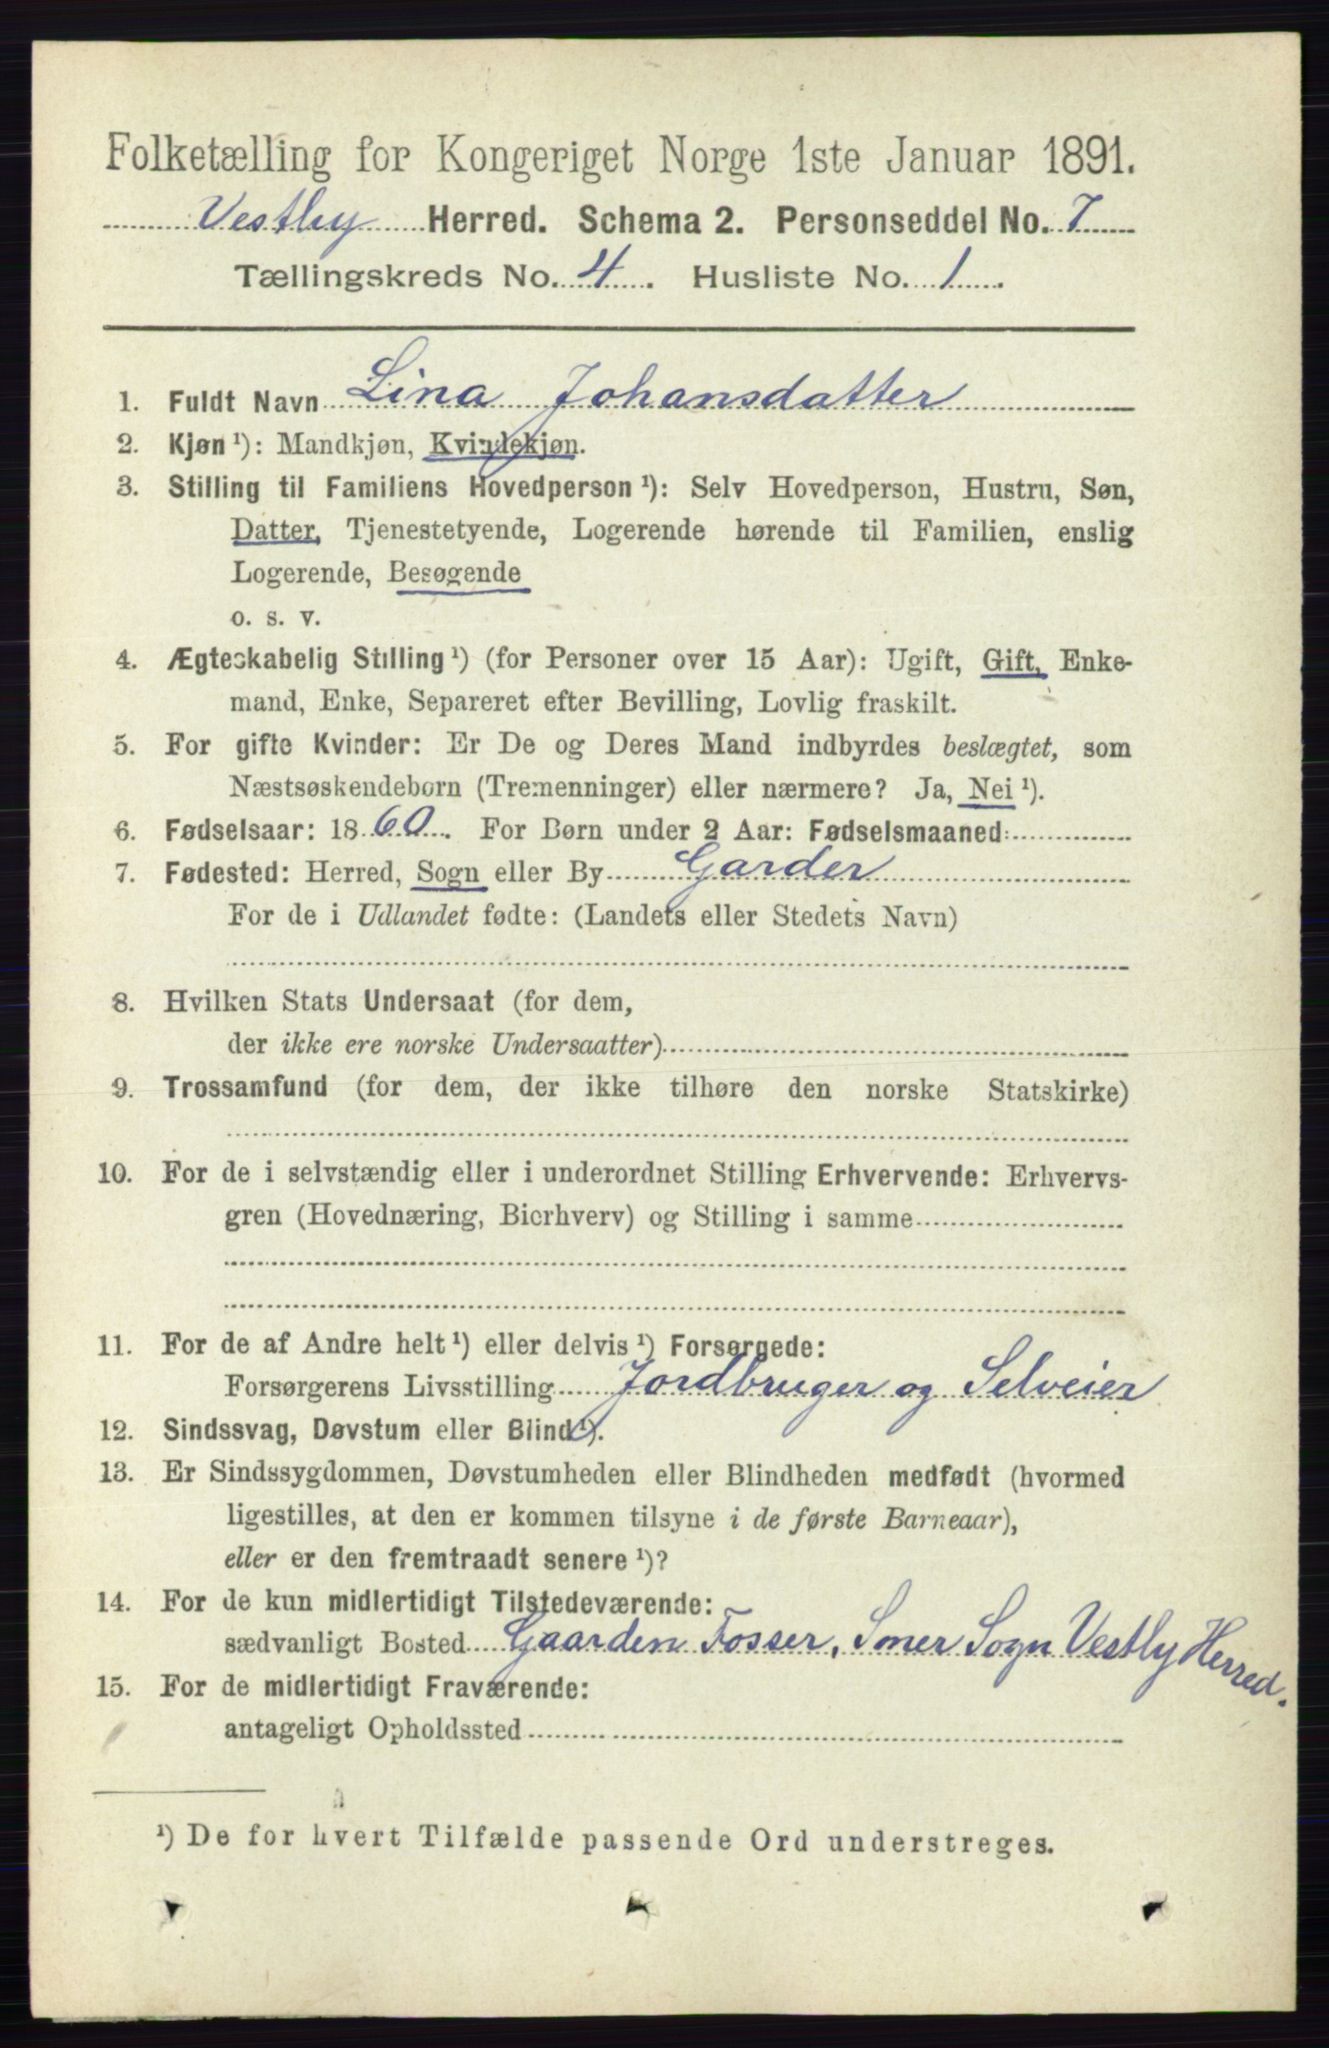 Folketælling for Kongeriget Norge 1ste Januar 1891.
Vestby Herred. Schema 2. Personseddel No. 7
Tællingskreds No. 4. Husliste No. 1.
1. Fuldt Navn Lina Johansdatter
2. Kjøn¹): Mandkjøn, Kvindekjøn.
3. Stilling til Familiens Hovedperson¹): Selv Hovedperson, Hustru, Søn,
Datter, Tjenestetyende, Logerende hørende til Familien, enslig
Logerende, Besøgende
o. s. v.
4. Ægteskabelig Stilling¹) (for Personer over 15 Aar): Ugift, Gift, Enke-
mand, Enke, Separeret efter Bevilling, Lovlig fraskilt.
5. For gifte Kvinder: Er De og Deres Mand indbyrdes beslægtet, som
Næstsøskendebørn (Tremenninger) eller nærmere? Ja, Nei¹).
6. Fødselsaar: 1860. For Børn under 2 Aar: Fødselsmaaned:
7. Fødested: Herred, Sogn eller By Garder
For de i Udlandet fødte: (Landets eller Stedets Navn)
8. Hvilken Stats Undersaat (for dem,
der ikke ere norske Undersaatter)
9. Trossamfund (for dem, der ikke tilhøre den norske Statskirke)
10. For de i selvstændig eller i underordnet Stilling Erhvervende: Erhvervs-
gren (Hovednæring, Bierhverv) og Stilling i samme
11. For de af Andre helt¹) eller delvis¹) Forsørgede:
Forsørgerens Livsstilling Jordbruger og Selveier
12. Sindssvag, Døvstum eller Blind¹).
13. Er Sindssygdommen, Døvstumheden eller Blindheden medfødt (hvormed
ligestilles, at den er kommen tilsyne i de første Barneaar),
eller er den fremtraadt senere¹)?
14. For de kun midlertidigt Tilstedeværende:
sædvanligt Bosted Gaarden Fosser, Soner Sogn Vestby Herred.
15. For de midlertidigt Fraværende:
antageligt Opholdssted
¹) De for hvert Tilfælde passende Ord understreges.